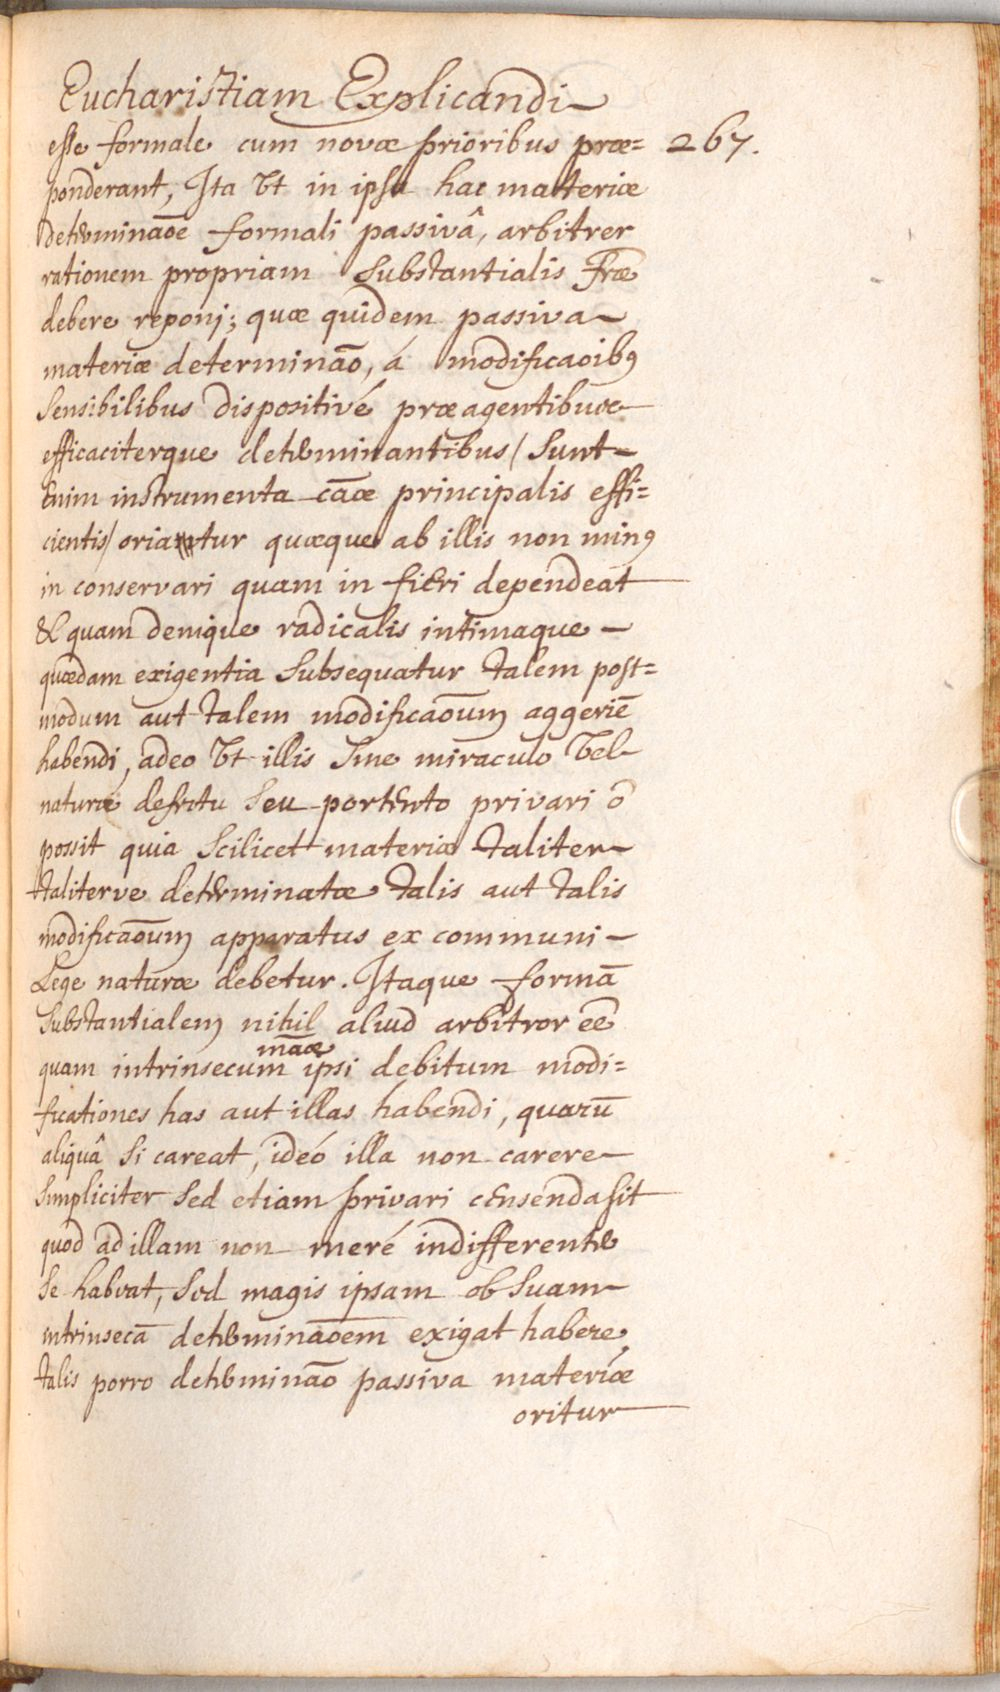 Eucharistiam Explicandi
esse formale cum novæ prioribus præ= 267.
ponderant, Ita Vt in ipsa hac materiæ
determinãoe formali passivâ, arbitrer
rationem propriam Substantialis Fræ
debere reponi; quæ quidem passiva
materiæ determinão, á modificãoibꝰ
Sensibilibus dispositivé præagentibus
efficaciterque determinantibus / Sunt
Enim instrumenta cãæ principalis effi=
cientis / oriatur quæque ab illis non minꝰ
in conservari quam in fieri dependeat
& quam denique radicalis intimaque
quædam exigentia Subsequatur talem post=
modum aut talem modificaõum aggeriẽ
habendi, adeo Vt illis Sine miraculo Vel
naturæ defectu Seu portento privari õ
possit quia Scilicet materiæ taliter
taliterve determinatæ talis aut talis
modificaõum apparatus ex communi
Lege naturæ debetur. Itaque formã
Substantialem nihil aliud arbitror eẽ
quam intrinsecum mãæ ipsi debitum modi=
ficationes has aut illas habendi, quarũ
aliquâ Si careat, ideó illa non carere
Simpliciter Sed etiam privari censenda sit
quod ad illam non meré indifferenter
Se habeat, Sed magis ipsam ob Suam
intrinsecã determinaõem exigat habere
talis porro determinão passiva materiæ
oritur